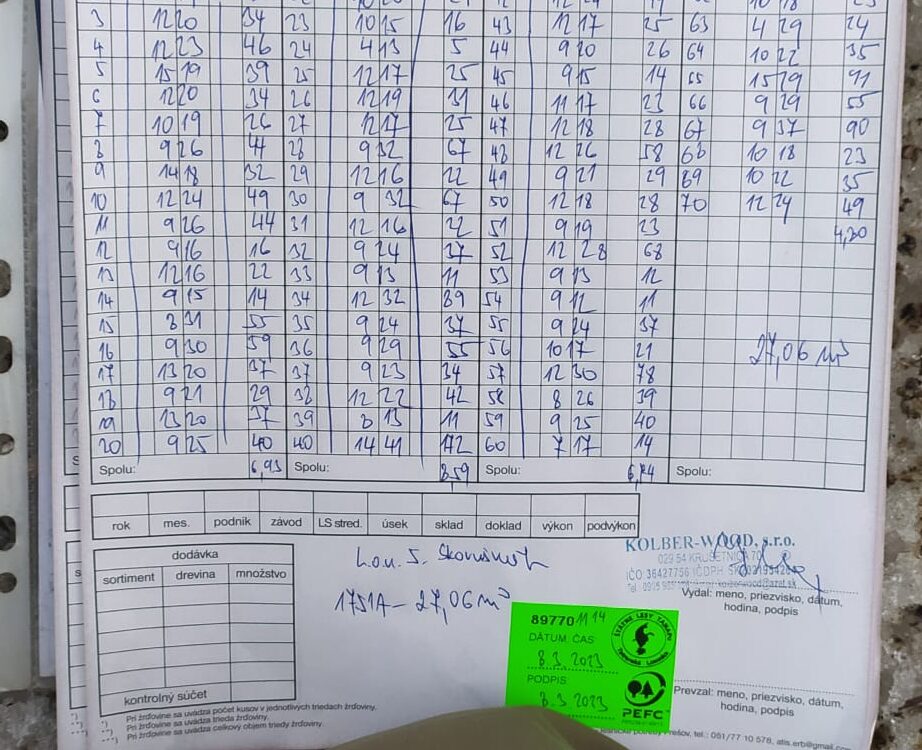 3 12 20 34 23 10 15 16 43 12 17 25 63 4 29 24
4 12 23 46 24 4 13 5 44 9 20 26 64 10 22 35
5 15 19 39 25 12 17 25 45 9 15 14 65 15 29 91
6 12 20 34 26 12 19 31 46 11 17 23 66 9 29 55
7 10 19 26 27 12 17 25 47 12 18 28 67 9 37 90
8 9 26 44 28 9 32 67 48 12 26 58 68 10 18 23
9 14 18 32 29 12 16 22 49 9 21 29 69 10 22 35
10 12 24 49 30 9 32 67 50 12 18 28 70 12 24 49
11 9 26 44 31 12 16 22 51 9 19 23 4,80
12 9 16 16 32 9 24 37 52 12 28 68
13 12 16 22 33 9 13 11 53 9 13 12
14 9 15 14 34 12 32 89 54 9 12 11
15 8 31 55 35 9 24 37 55 9 24 37
16 9 30 59 36 9 29 55 56 10 17 21 27,06 m³
17 13 20 37 37 9 23 34 57 12 30 78
18 9 21 29 38 12 22 42 58 8 26 39
19 13 20 37 39 8 13 11 59 9 25 40
20 9 25 40 40 14 41 172 60 7 17 14
Spolu: 6,93 Spolu: 8,59 Spolu: 6,74 Spolu:
rok mes. podnik závod LS stred. úsek sklad doklad výkon podvýkon
dodávka
sortiment drevina množstvo
kontrolný súčet
1751A - 27,06 m³
KOLBER-WOOD, s.r.o.
029 54 KRUŠETNICA 70
IČO 36427756
Vydal: meno, priezvisko, dátum,
hodina, podpis
89770 11 14
DÁTUM, ČAS
8.3.2023
PODPIS:
8.3.2023
ŠTÁTNE LESY TANAPU
PEFC
Prevzal: meno, priezvisko, dátum,
hodina, podpis
*) Pri žrďovine sa uvádza počet kusov v jednotlivých triedach žrďoviny.
**) Pri žrďovine sa uvádza trieda žrďoviny.
***) Pri žrďovine sa uvádza celkový objem triedy žrďoviny.
tel.: 051/77 10 578, atis.erb@gmail.com